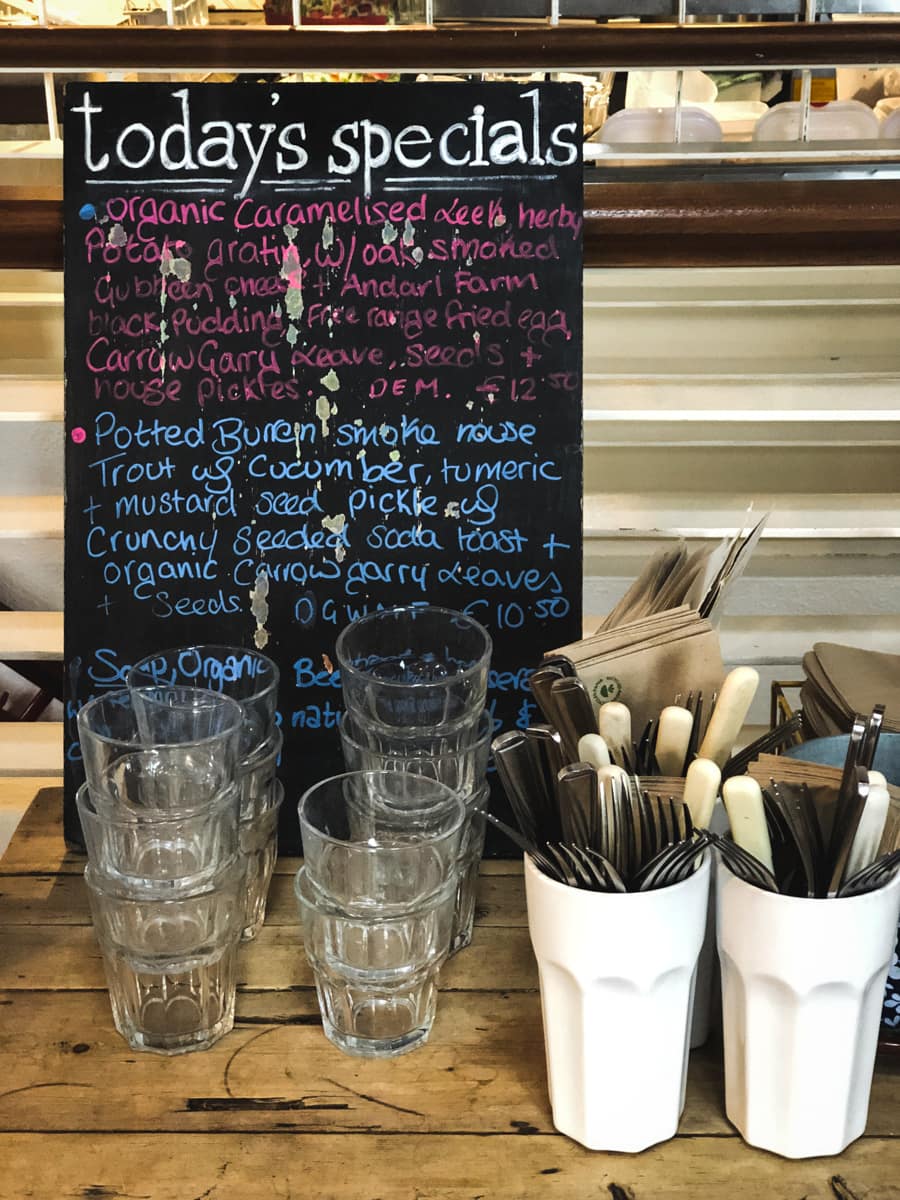 today's specials
organic Caramelised Leek herby
Potato gratin, w/ oak smoked
Gubbeen cheese + Andarl Farm
black Pudding, Free range fried egg,
Carrow Garry Leave, seeds +
house pickles. DEM. €12.50
Potted Burren smoke house
Trout w/ Cucumber, tumeric
+ mustard seed pickle w/
Crunchy Seeded soda toast +
organic Carrowgarry Leaves
+ Seeds. €10.50
Soup, Organic Bee
natu &